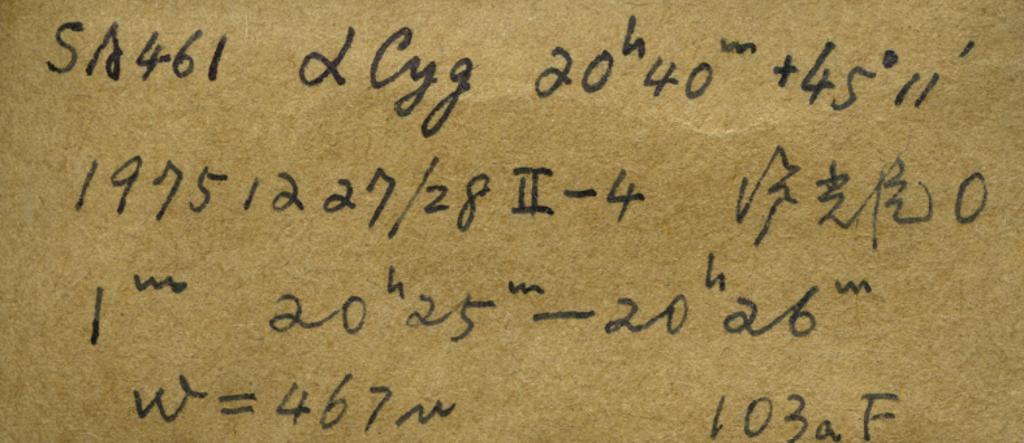 SA461 α Cyg 20ʰ40ᵐ +45°11′
1975 12 27/28 II-4 光 0
1ᵐ 20ʰ25ᵐ-20ʰ26ᵐ
W=467μ 103aF